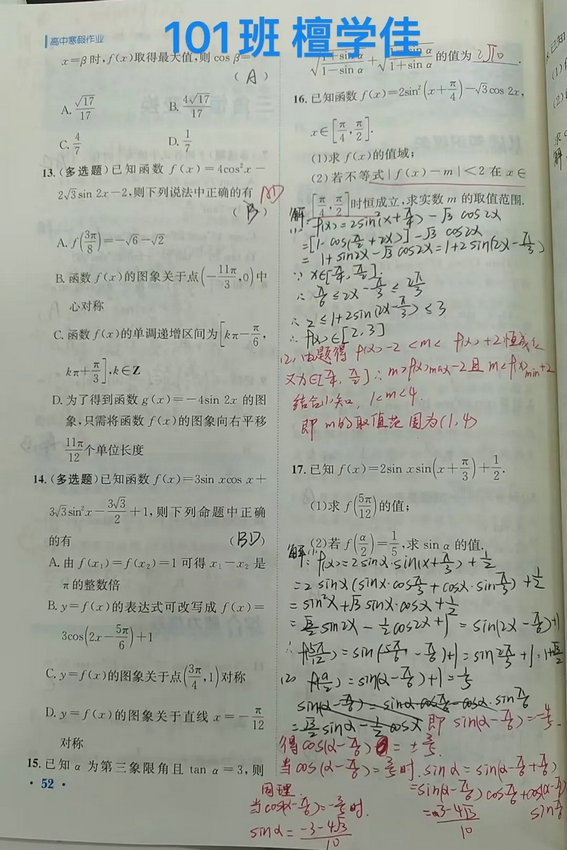 101班 檀学佳
高中寒假作业
x=β时,f(x)取得最大值,则 cos β=
(A)
A. √17/17 B. 4√17/17
C. 4/7 D. 1/7
13.(多选题)已知函数 f(x)=4cos²x-
2√3sin 2x-2,则下列说法中正确的有 AD
(B)
A. f(3π/8)=-√6-√2
B. 函数 f(x)的图象关于点(-11π/3,0)中
心对称
C. 函数 f(x)的单调递增区间为[kπ-π/6,
kπ+π/3],k∈Z
D. 为了得到函数 g(x)=-4sin 2x 的图
象,只需将函数 f(x)的图象向右平移
11π/12个单位长度
14.(多选题)已知函数 f(x)=3sin xcos x+
3√3sin²x-3√3/2+1,则下列命题中正确
的有 (BD)
A. 由 f(x₁)=f(x₂)=1 可得 x₁-x₂ 是
π的整数倍
B. y=f(x)的表达式可改写成 f(x)=
3cos(2x-5π/6)+1
C. y=f(x)的图象关于点(3π/4,1)对称
D. y=f(x)的图象关于直线 x=-π/12
对称
15.已知 α 为第三象限角且 tan α=3,则
52
√(1+sin α)/(1-sin α)+√(1-sin α)/(1+sin α)的值为 2√10.
16.已知函数 f(x)=2sin²(x+π/4)-√3cos 2x,
x∈[π/4,π/2].
(1)求 f(x)的值域;
(2)若不等式|f(x)-m|<2 在 x∈
[π/4,π/2]时恒成立,求实数 m 的取值范围.
解(1) f(x)=2sin²(x+π/4)-√3 cos2x
=[1-cos(π/2+2x)]-√3 cos2x
=1+sin2x-√3cos2x=1+2sin(2x-π/3)
∵ x∈[π/4,π/2]
∴ π/6≤2x-π/3≤2π/3
∴ 2≤1+2sin(2x-π/3)≤3
∴ f(x)∈[2,3]
(2) 由题得 f(x)-2<m<f(x)+2恒成立
又x∈[π/4,π/2] ∴ m>f(x)max-2且m<f(x)min+2
结合(1)知, 1<m<4.
即 m的取值范围为(1,4)
17.已知 f(x)=2sin xsin(x+π/3)+1/2.
(1)求 f(5π/12)的值;
(2)若 f(α/2)=1/5,求 sin α 的值.
解(1) ∵ f(x)=2sinx·sin(x+π/3)+1/2
=2sinx(sinx·cosπ/3+cosx·sinπ/3)+1/2
=sin²x+√3sinx·cosx+1/2
=√3/2 sin2x-1/2cos2x+1=sin(2x-π/6)+1
∴ f(5π/12)=sin(5π/6-π/6)+1=sin2π/3+1=1+√3/2
(2) f(α/2)=sin(α-π/6)+1=1/5
sin(α-π/6)=sinα·cosπ/6-cosα·sinπ/6
=√3/2sinα-1/2cosα 即 sin(α-π/6)=-4/5.
得cos(α-π/6)=±3/5.
当cos(α-π/6)=3/5时. sinα=sin(α-π/6+π/6)
=sin(α-π/6)cosπ/6+cos(α-π/6)sinπ/6
=3-4√3/10
同理.
当cos(α-π/6)=-3/5时.
sinα=-3-4√3/10